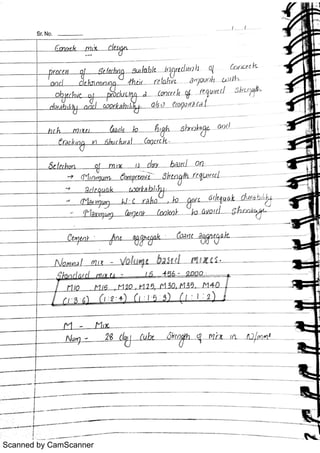 Sr. No.
Concrete mix design
process of selecting suitable ingredients of Concrete
and determining their relative amounts with
objective of producing a concrete of required strength
durability and workability also economical
rich mixes leads to high shrinkage and
Cracking in structural Concrete.
Selection of mix is don based on
→ Minimum Compressive Strength required
→ adequate workability
→ Maximum W:C ratio, to give adequate durability
- Maximum Cement Content to avoid shrinkage
Cement : fine aggregate Coarse aggregate
Nominal mix - Volume based mixes.
Standard mixes - IS 456 - 2000
M10 M15, M20, M25, M30, M35, M40
(1:3:6) (1:2:4) (1:1.5:3) (1:1:2)
M - Mix
Num - 28 day Cube Strength of mix in N/mm²
Scanned by CamScanner